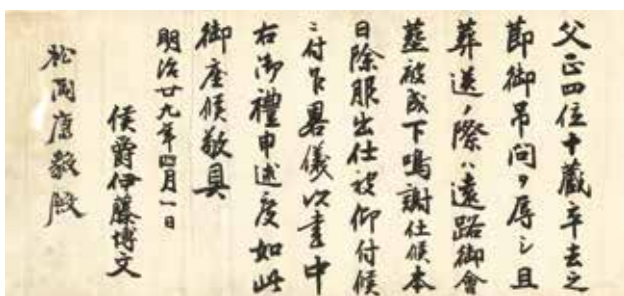 父正四位十藏卒去之
節御吊問ヲ辱シ且
葬送ノ際ハ遠路御會
葬被成下鳴謝仕候本
日除服出仕被仰付候
ニ付乍畧儀以書中
右御禮申述度如此
御座候敬具
明治廿九年四月一日
侯爵伊藤博文
松岡康毅殿